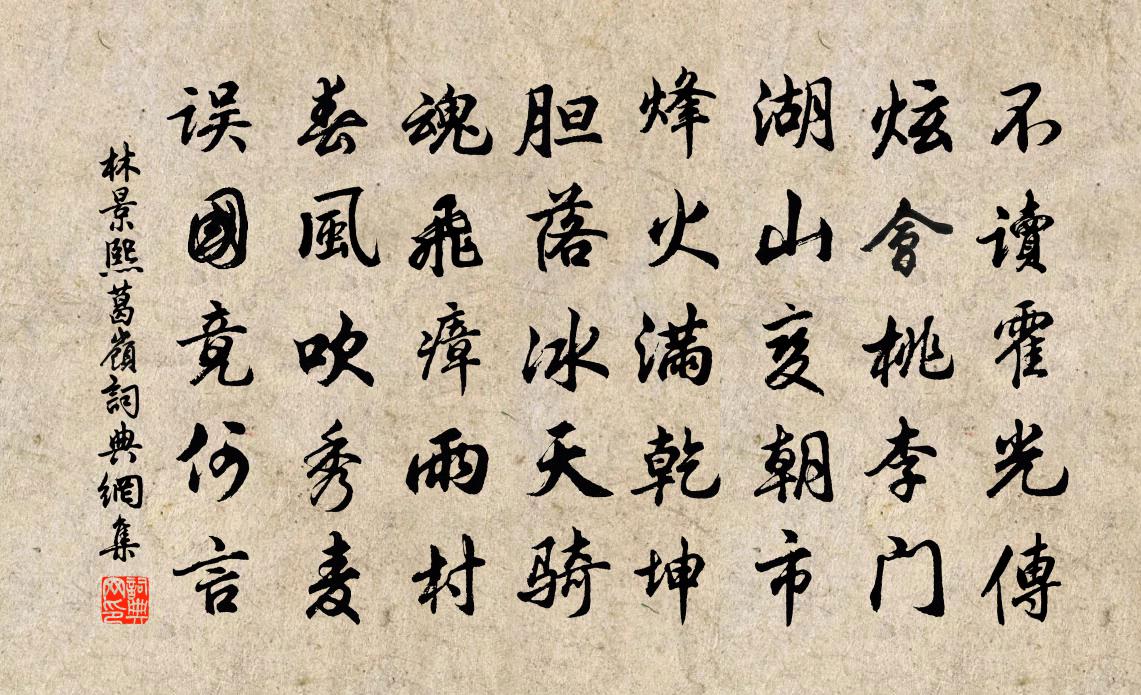 不讀霍光傳
炫會桃李门
湖山变朝市
烽火满乾坤
胆落冰天骑
魂飛瘴雨村
春風吹秀麦
误國竟何言
林景熙葛嶺詞典網集
詞典网印